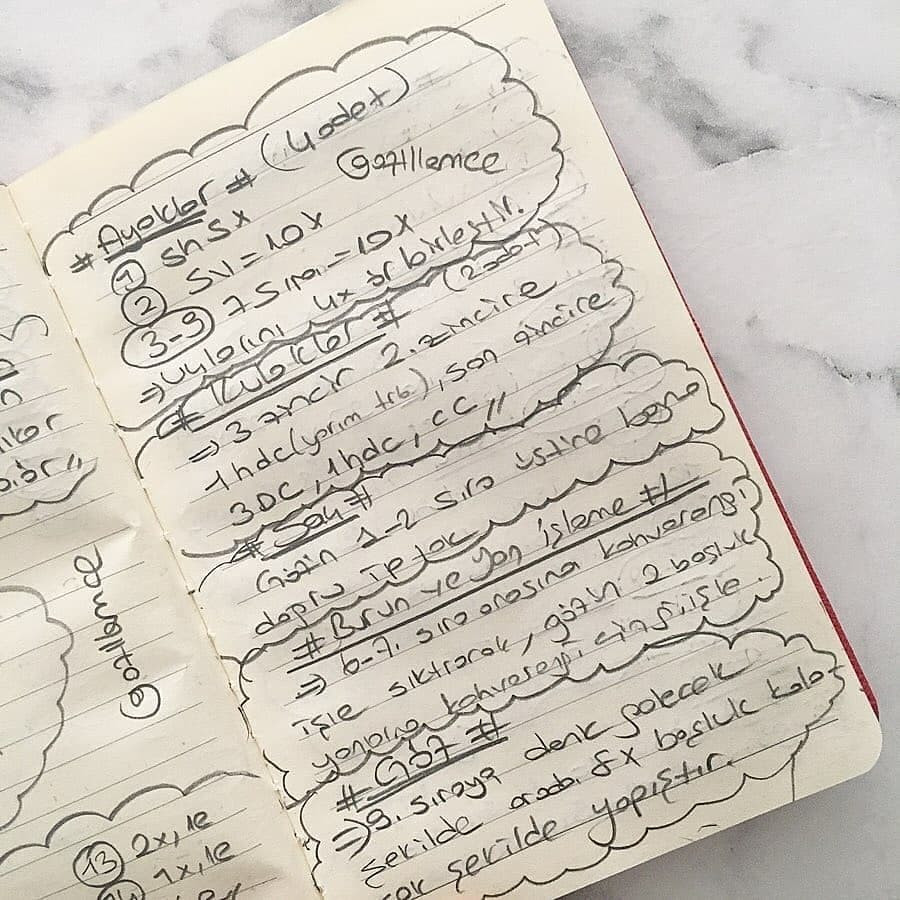 # Ayaklar # (4 adet)
@gozillamice
① Sh 5x
② SV = 10x
③-⑨ 7 Sıra = 10x
⇒ Uçlarını 4x ör birleştir.
# Kulaklar # (2 adet)
⇒ 3 zincir 2. zincire
1hdc (yarım trb), son zincire
3DC, 1hdc, cc,,
# Saç #
Gözün 1-2 sıra üstüne
doğru
# Burun ve yan işleme #
⇒ 6-7. sıra arasına kahverengi
işle sıktırarak, gözün 2 boşluk
yanına kahverengi işle.
# Göz #
⇒ 9. sıraya denk gelecek
şekilde arada 5x boşluk kala-
cak şekilde yapıştır.
@gozillamice
⑬ 2x, 1e
1x, 1e